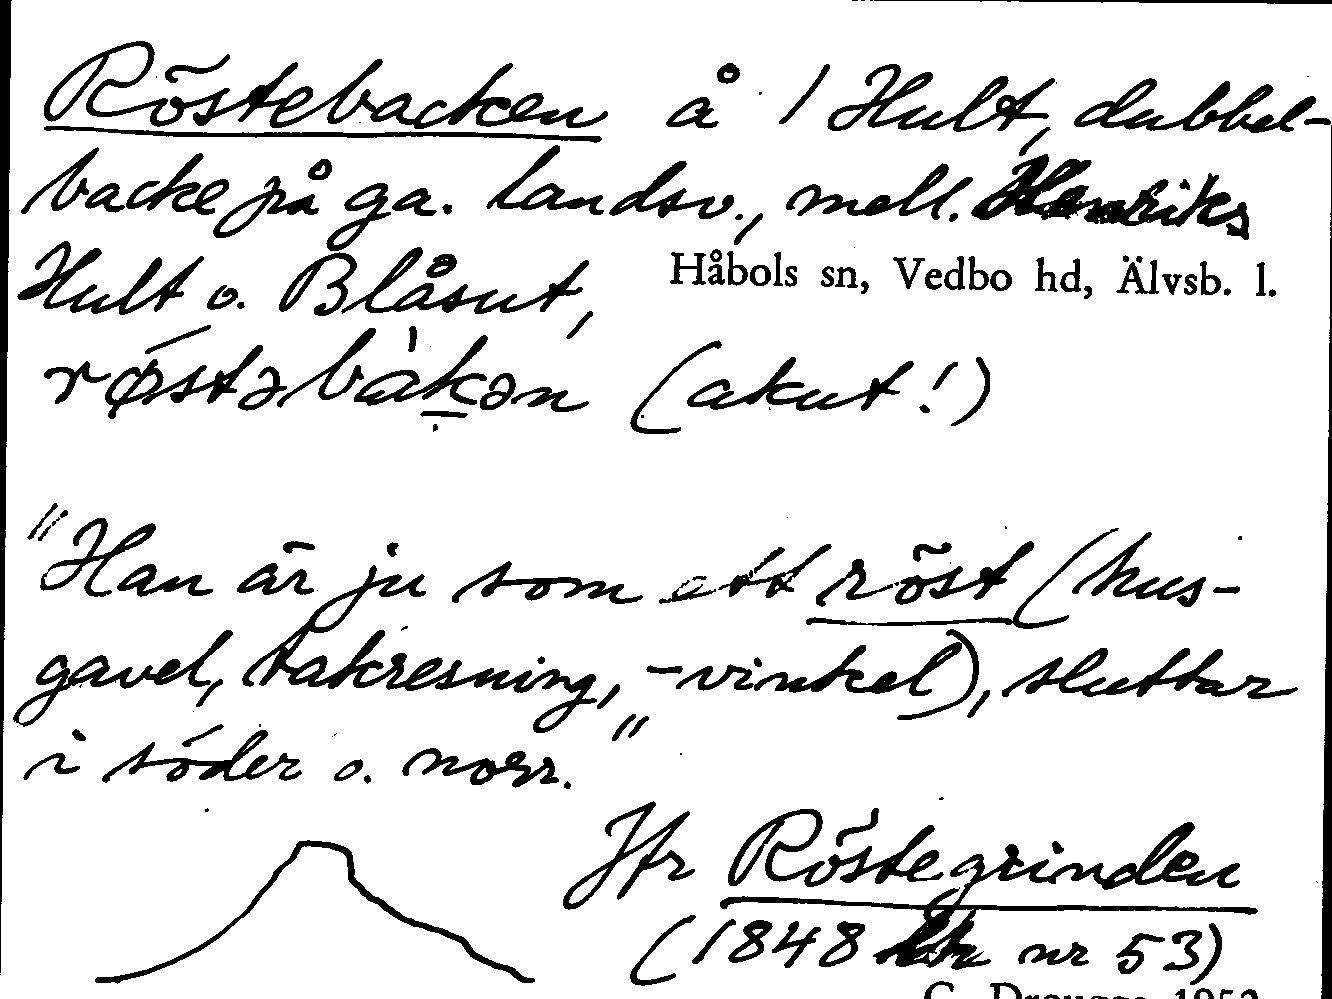 Röstebacken å 1 Hult, dubbel-
backe på ga. landsv., mell. Henriks
Hult o. Blåsut,
Håbols sn, Vedbo hd, Älvsb. l.
(akut!)
"Han är ju som ett röst (hus-
gavel, takresning, -vinkel), sluttar
i söder o. norr."
Jfr Röstegrinden
(1848 lsk nr 53)